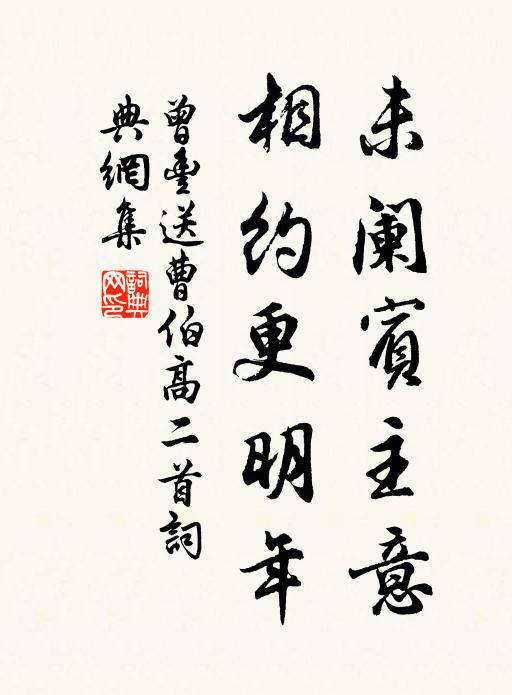 未阑賓主意
相约更明年
曾豊送曹伯高二首詞
典網集
詞典网印